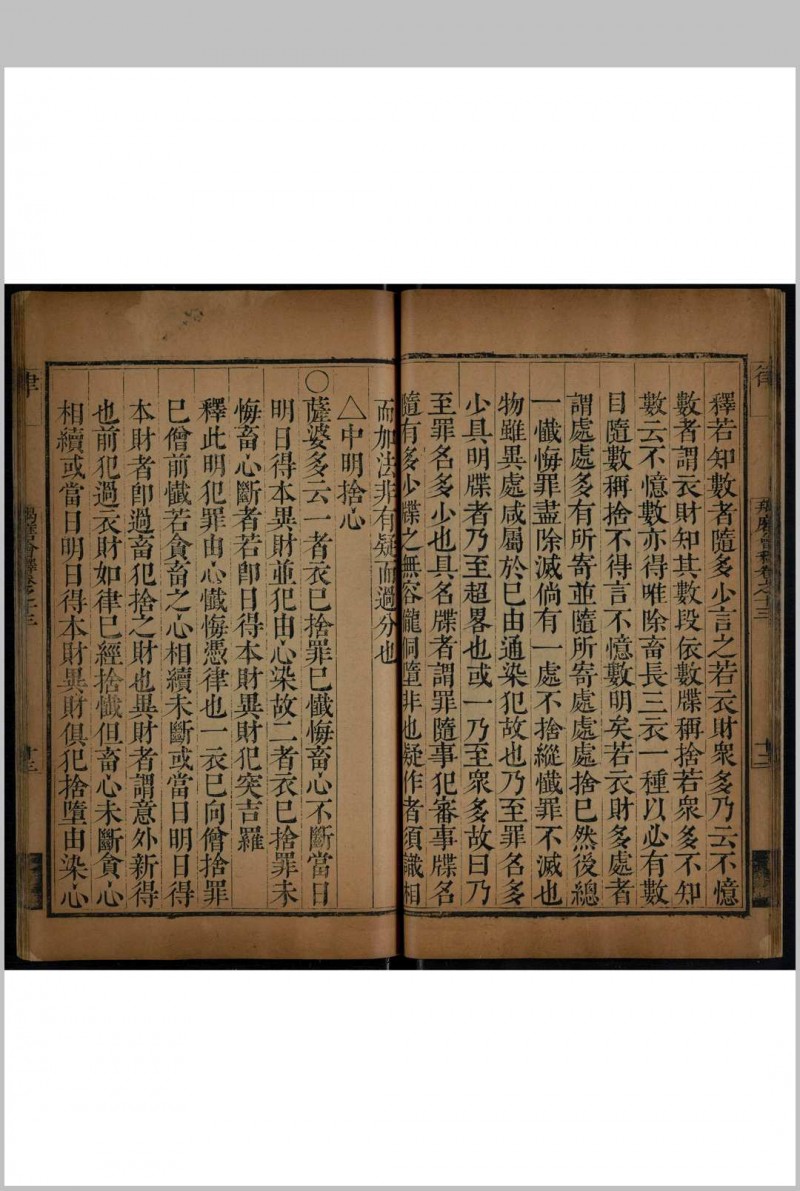 釋若知數者隨多少言之若衣財衆多乃云不憶
數者謂衣財知其數段依數牒稱捨若衆多不知
數云不憶數亦得唯除畜長三衣一種以必有數
目隨數稱捨不得言不憶數明矣若衣財多處者
謂處處多有所寄並隨所寄處處處捨已然後總
一懺悔罪盡除滅倘有一處不捨縱懺罪不滅也
物雖異處咸屬於已由通染犯故也乃至罪名多
少具明牒者乃至超畧也或一乃至衆多故曰乃
至罪名多少也具名牒者謂罪隨事犯審事牒名
隨有多少牒之無容儱侗墮非也疑作者須識相
而加法非有疑而過分也
△中明捨心
○薩婆多云一者衣已捨罪已懺悔畜心不斷當日
明日得本異財並犯由心染故二者衣已捨罪未
悔畜心斷者若卽日得本財異財犯突吉羅
釋此明犯罪由心懺悔憑律也一衣已向僧捨罪
已僧前懺若貪畜之心相續未斷或當日明日得
本財者卽過畜犯捨之財也異財者謂意外新得
也前犯過衣財如律已經捨懺但畜心未斷貪心
相續或當日明日得本財異財俱犯捨墮由染心
律
十三